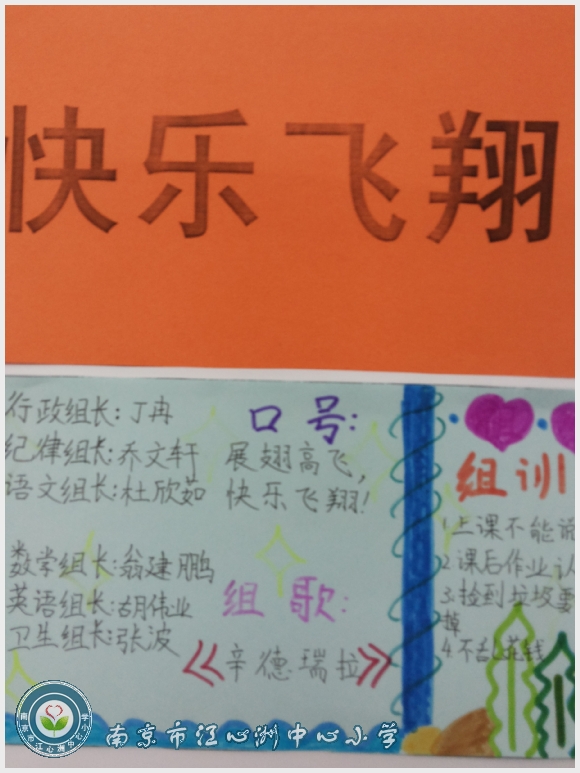 快乐飞翔
行政组长:丁冉
纪律组长:乔文轩
语文组长:杜欣茹
数学组长:翁建鹏
英语组长:胡伟业
卫生组长:张波
口号:
展翅高飞,
快乐飞翔!
组歌:
《辛德瑞拉》
组训
1.上课不能说
2.课后作业认
3.捡到垃圾要
掉
4.不乱花钱
南京市江心洲中心小学
南京市江心洲中心小学